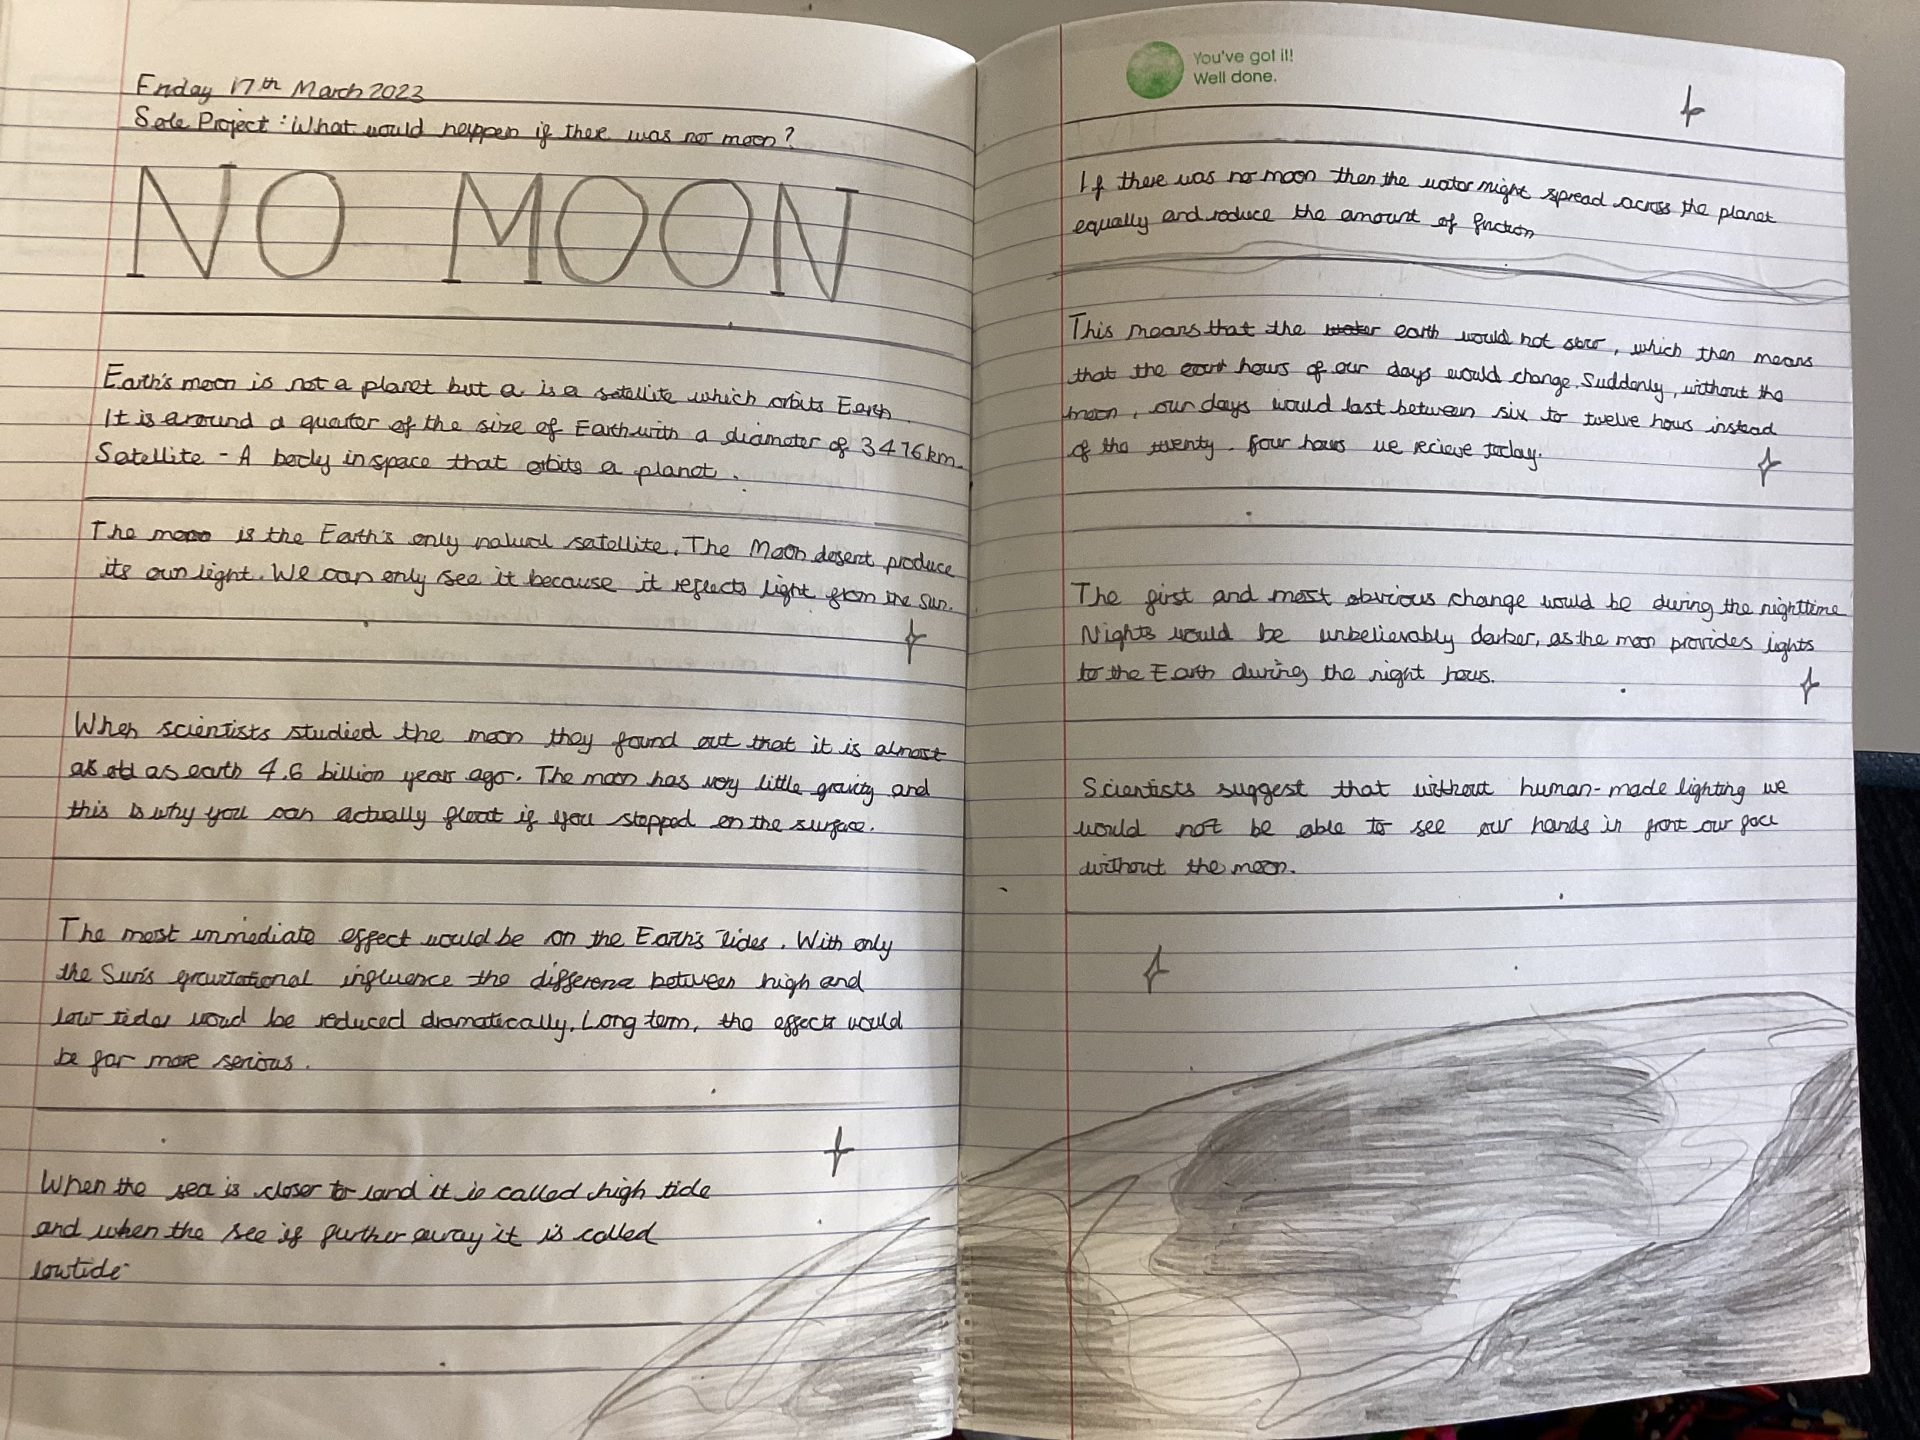 Friday 17th March 2023
Sole Project: What would happen if there was no moon?
NO MOON
Earth's moon is not a planet but a is a satellite which orbits Earth
It is around a quarter of the size of Earth with a diameter of 3476km.
Satellite - A body in space that orbits a planet.
The moon is the Earth's only natural satellite. The Moon desent produce
its own light. We can only see it because it reflects light from the sun.
When scientists studied the moon they found out that it is almost
as old as earth 4.6 billion years ago. The moon has very little gravity and
this is why you can actually float if you stepped on the surface.
The most immediate effect would be on the Earth's Tides. With only
the Sun's gravitational influence the difference between high and
low tides woud be reduced dramatically. Long term, the effects would
be far more serious.
When the sea is closer to land it is called high tide
and when the see if further away it is called
lowtide
You've got it!
Well done.
If there was no moon then the water might spread across the planet
equally and reduce the amount of friction
This means that the water earth would not slow, which then means
that the eart hours of our days would change. Suddenly, without the
moon, our days would last between six to twelve hours instead
of the twenty-four hours we recieve today.
The first and most obvious change would be during the nighttime
Nights would be unbelievably darker, as the moon provides lights
to the Earth during the night hours.
Scientists suggest that without human-made lighting we
would not be able to see our hands in front our face
without the moon.